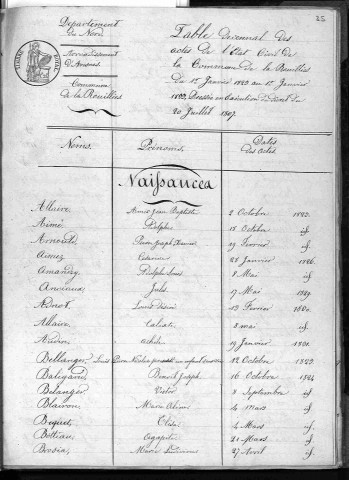 25
Département
du Nord
Arrondissement
d'Avesnes
Commune
de la Rouillies
TIMBRE ROYAL
Table Décennal des
actes de l'Etat Civil de
la Commune de la Rouillies
Du 1er Janvier 1823 au 1er Janvier
1833, Dressée en Exécution du Décret du
20 Juillet 1807.
Noms. Prénoms. Dates des Actes
Naissances
Allaire Aimé Jean Baptiste 2 Octobre 1823.
Aimé Adolphe 18 Octobre id
Arnould Pierre Joseph 29 Fevrier id
28 Janvier 1826.
Amandry Adolphe Louis 8 Mai id
Anciaux Jules 17 Mai 1827
Louis Désiré 13 Fevrier 1830.
Allaire 8 mai id
Achile 19 Janvier 1831.
Bellanger Louis Pierre Nicolas 12 Octobre 1823
Benoit Joseph 16 Octobre 1824
Belanger Victor 8 Septembre id
Blairon Marie 4 Mars id
Elisa 4 Mars id
Bottiau Agapite 21 Mars id
Marie 27 Avril id